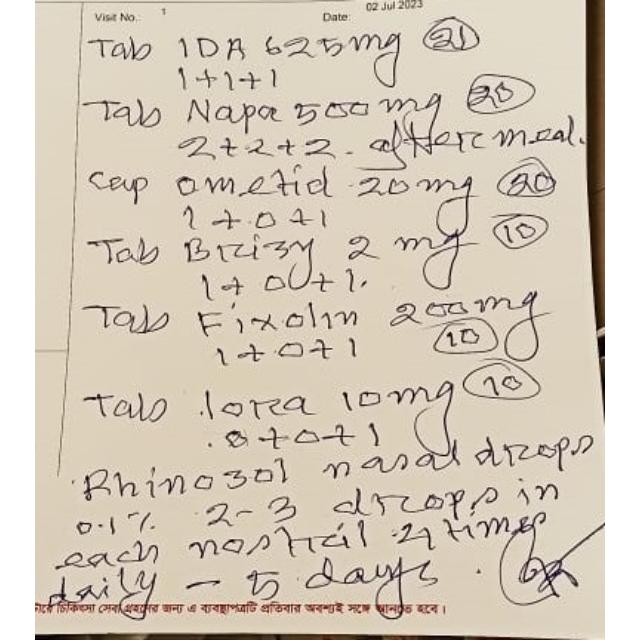 Visit No.: 1 Date: 02 Jul 2023
Tab IDA 625mg (21)
1+1+1
Tab Napa 500mg (20)
2+2+2. after meal.
Cap ometid 20mg (20)
1+0+1
Tab Brizy 2 mg (10)
1+0+1.
Tab Fixolin 200mg
(10)
1+0+1
Tab lora 10mg (10)
0+0+1
Rhinozol nasal drops
0.1% 2-3 drops in
each nostril times
daily - 5 days.
চিকিৎসা সেবা গ্রহণের জন্য এ ব্যবস্থাপত্রটি প্রতিবার অবশ্যই সঙ্গে আনতে হবে।